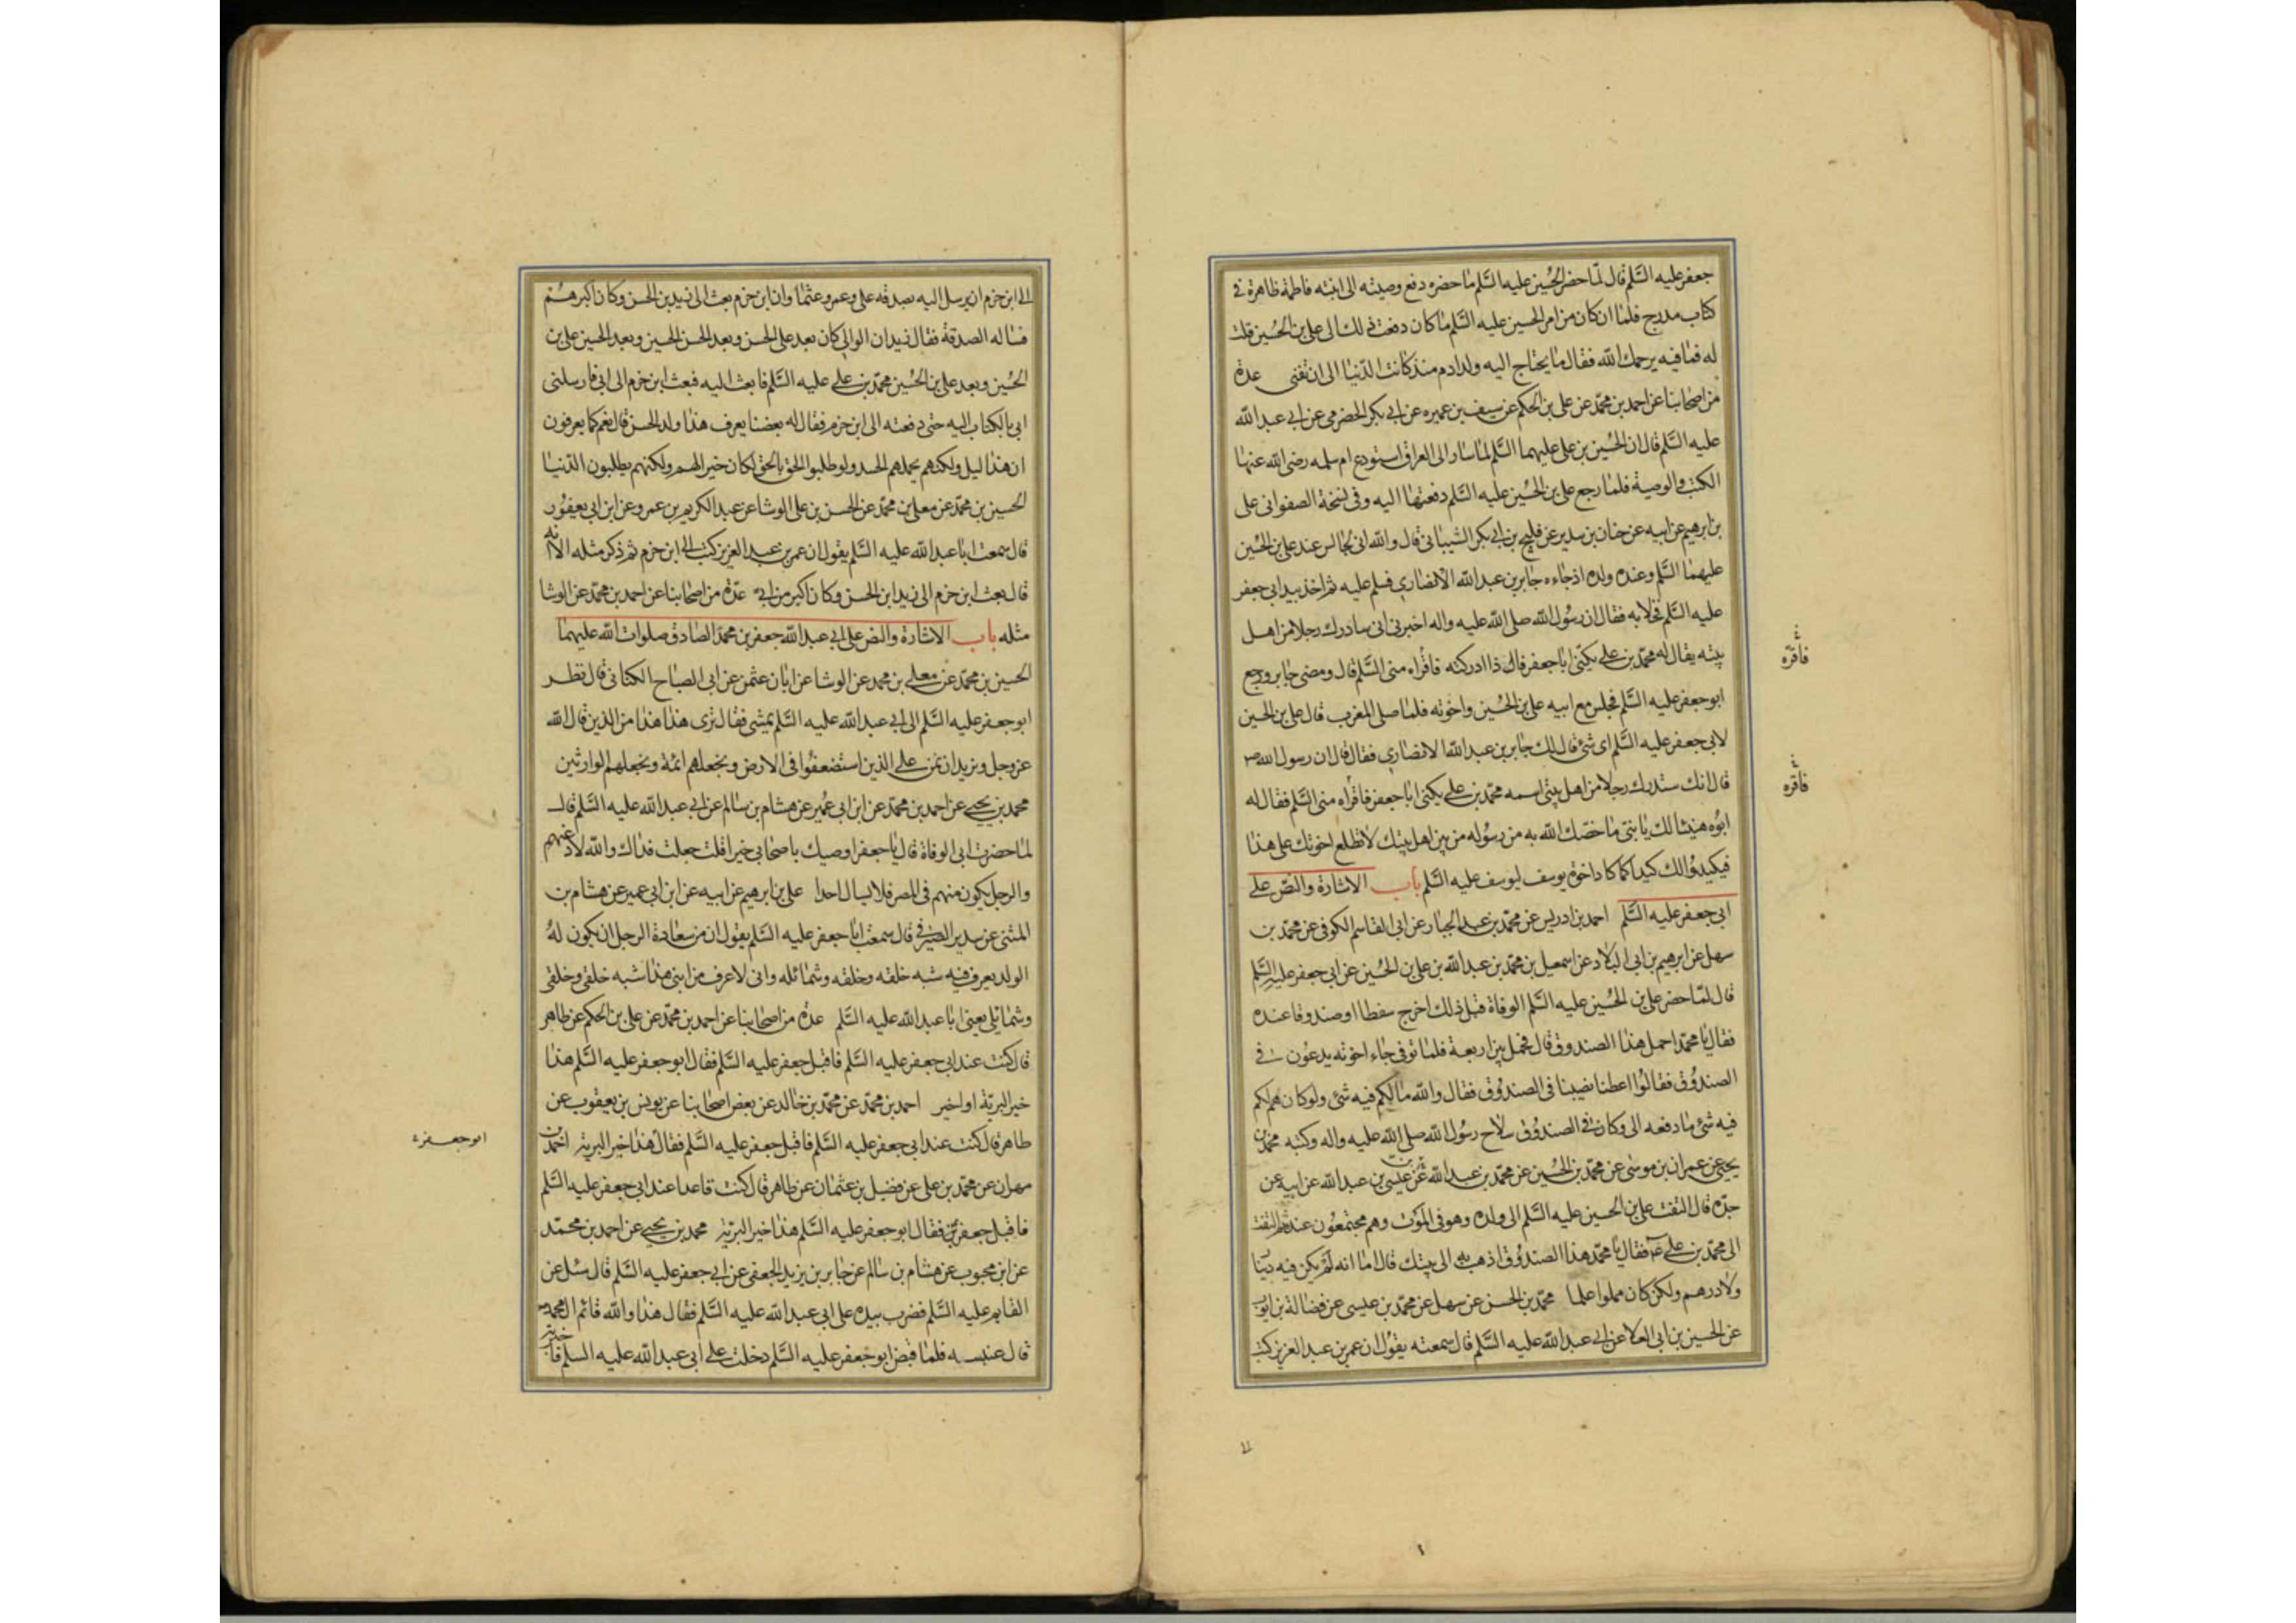 جعفر عليه السلم قال لما حضر الحسين عليه السلم ما حضره دفع وصيته الى ابنته فاطمة ظاهرة في
كتاب مدرج فلما ان كان من امر الحسين عليه السلم ما كان دفعت ذلك الى على بن الحسين قلت
له فما فيه يرحمك الله فقال ما يحتاج اليه ولد ادم منذ كانت الدنيا الى ان تفنى عدة
من اصحابنا عن احمد بن محمد عن على بن الحكم عن سيف بن عميره عن ابي بكر الحضرمى عن ابي عبد الله
عليه السلم قال ان الحسين بن على عليهما السلم لما سار الى العراق استودع ام سلمه رضى الله عنها
الكتب والوصية فلما رجع على بن الحسين عليه السلم دفعتها اليه وفى نسخة الصفوانى على
بن ابرهيم عن ابيه عن حنان بن سدير عن فليح بن ابي بكر الشيبانى قال والله انى لجالس عند على بن الحسين
عليهما السلم وعنده ولده اذ جاءه جابر بن عبد الله الانصاري فسلم عليه ثم اخذ بيد ابى جعفر
عليه السلم فخلا به فقال ان رسول الله صلى الله عليه واله اخبرنى انى سادرك رجلا من اهل
بيته يقال له محمد بن على يكنى ابا جعفر فاذا ادركته فاقراه منى السلم قال ومضى جابر ورجع
فاقره
ابو جعفر عليه السلم فجلس مع ابيه على بن الحسين واخوته فلما صلى المغرب قال على بن الحسين
لابى جعفر عليه السلم اى شئ قال لك جابر بن عبد الله الانصاري فقال قال ان رسول الله ص
قال انك ستدرك رجلا من اهل بيتى اسمه محمد بن على يكنى ابا جعفر فاقراه منى السلم فقال له
فاقره
ابوه هنيئا لك يا بنى ما خصك الله به من رسوله من بين اهل بيتك لا تطلع اخوتك على هذا
فيكيدوا لك كيدا كما كاد اخوة يوسف ليوسف عليه السلم باب الاشارة والنص على
ابى جعفر عليه السلم احمد بن ادريس عن محمد بن عبد الجبار عن ابى القاسم الكوفى عن محمد بن
سهل عن ابرهيم بن ابى البلاد عن اسمعيل بن محمد بن عبد الله بن على بن الحسين عن ابى جعفر عليه السلم
قال لما حضر على بن الحسين عليه السلم الوفاة قبل ذلك اخرج سفطا او صندوقا عنده
فقال يا محمد احمل هذا الصندوق قال فحمل بين اربعة فلما توفى جاء اخوته يدعون في
الصندوق فقالوا اعطنا نصيبنا فى الصندوق فقال والله ما لكم فيه شئ ولو كان لكم
فيه شئ ما دفعه الى وكان في الصندوق سلاح رسول الله صلى الله عليه واله وكتبه محمد بن
يحيى عن عمران بن موسى عن محمد بن الحسين عن محمد بن عبد الله عن عيسى بن عبد الله عن ابيه عن
جده قال التفت على بن الحسين عليه السلم الى ولده وهو فى الموت وهم مجتمعون عنده ثم التفت
الى محمد بن على فقال يا محمد هذا الصندوق اذهب به الى بيتك قال اما انه لم يكن فيه دينا
ولا درهم ولكن كان مملوا علما محمد بن الحسن عن سهل عن محمد بن عيسى عن فضالة بن ايوب
عن الحسين بن ابى العلا عن ابي عبد الله عليه السلم قال سمعته يقول ان عمر بن عبد العزيز كتب
الى ابن حزم ان يرسل اليه بصدقه على وعمر وعثمان وان ابن حزم بعث الى زيد بن الحسن وكان اكبرهم
فساله الصدقة فقال زيد ان الوالى كان بعد على الحسن وبعد الحسن الحسين وبعد الحسين على بن
الحسين وبعد على بن الحسين محمد بن على عليه السلم فابعث اليه فبعث ابن حزم الى ابى فارسلنى
ابى بالكتاب اليه حتى دفعته الى ابن حزم فقال له بعضنا يعرف هذا ولد الحسن قال نعم كما يعرفون
ان هذا ليل ولكنهم يحملهم الحسد ولو طلبوا الحق بالحق لكان خيرا لهم ولكنهم يطلبون الدنيا
الحسين بن محمد عن معلى بن محمد عن الحسن بن على الوشا عن عبد الكريم بن عمرو عن ابن ابى يعفور
قال سمعت ابا عبد الله عليه السلم يقول ان عمر بن عبد العزيز كتب الى ابن حزم ثم ذكر مثله الا انه
قال بعث ابن حزم الى زيد ابن الحسن وكان اكبر من ابى عدة من اصحابنا عن احمد بن محمد عن الوشا
مثله باب الاشارة والنص على ابى عبد الله جعفر بن محمد الصادق صلوات الله عليهما
الحسين بن محمد عن معلى بن محمد عن الوشا عن ابان عثمن عن ابى الصباح الكنانى قال نظر
ابو جعفر عليه السلم الى ابي عبد الله عليه السلم يمشى فقال ترى هذا هذا من الذين قال الله
عز وجل ونريد ان نمن على الذين استضعفوا فى الارض ونجعلهم ائمة ونجعلهم الوارثين
محمد بن يحيى عن احمد بن محمد عن ابن ابى عمير عن هشام بن سالم عن ابي عبد الله عليه السلم قال
لما حضرت ابى الوفاة قال يا جعفر اوصيك باصحابى خيرا قلت جعلت فداك والله لادعنهم
والرجل يكون منهم فى المصر فلا يسال احدا على بن ابرهيم عن ابيه عن ابن ابى عمير عن هشام بن
المثنى عن سدير الصيرفي قال سمعت ابا جعفر عليه السلم يقول ان من سعادة الرجل ان يكون له
الولد يعرف فيه شبه خلقه وخلقه وشمائله وانى لاعرف من ابنى هذا شبه خلقى وخلقى
وشمائلى يعنى ابا عبد الله عليه السلم عدة من اصحابنا عن احمد بن محمد عن على بن الحكم عن طاهر
قال كنت عند ابى جعفر عليه السلم فاقبل جعفر عليه السلم فقال ابو جعفر عليه السلم هذا
خير البرية او اخير احمد بن محمد عن محمد بن خالد عن بعض اصحابنا عن يونس بن يعقوب عن
طاهر قال كنت عند ابى جعفر عليه السلم فاقبل جعفر عليه السلم فقال هذا خير البرية احمد بن
ابو جعفر ع
مهران عن محمد بن على عن فضيل بن عثمان عن طاهر قال كنت قاعدا عند ابى جعفر عليه السلم
فاقبل جعفر فقال ابو جعفر عليه السلم هذا خير البرية محمد بن يحيى عن احمد بن محمد
عن ابن محبوب عن هشام بن سالم عن جابر بن يزيد الجعفى عن ابي جعفر عليه السلم قال سئل عن
القايم عليه السلم فضرب بيده على ابى عبد الله عليه السلم فقال هذا والله قائم ال محمد
قال عنبسه فلما قبض ابو جعفر عليه السلم دخلت على ابى عبد الله عليه السلم فاخبرته